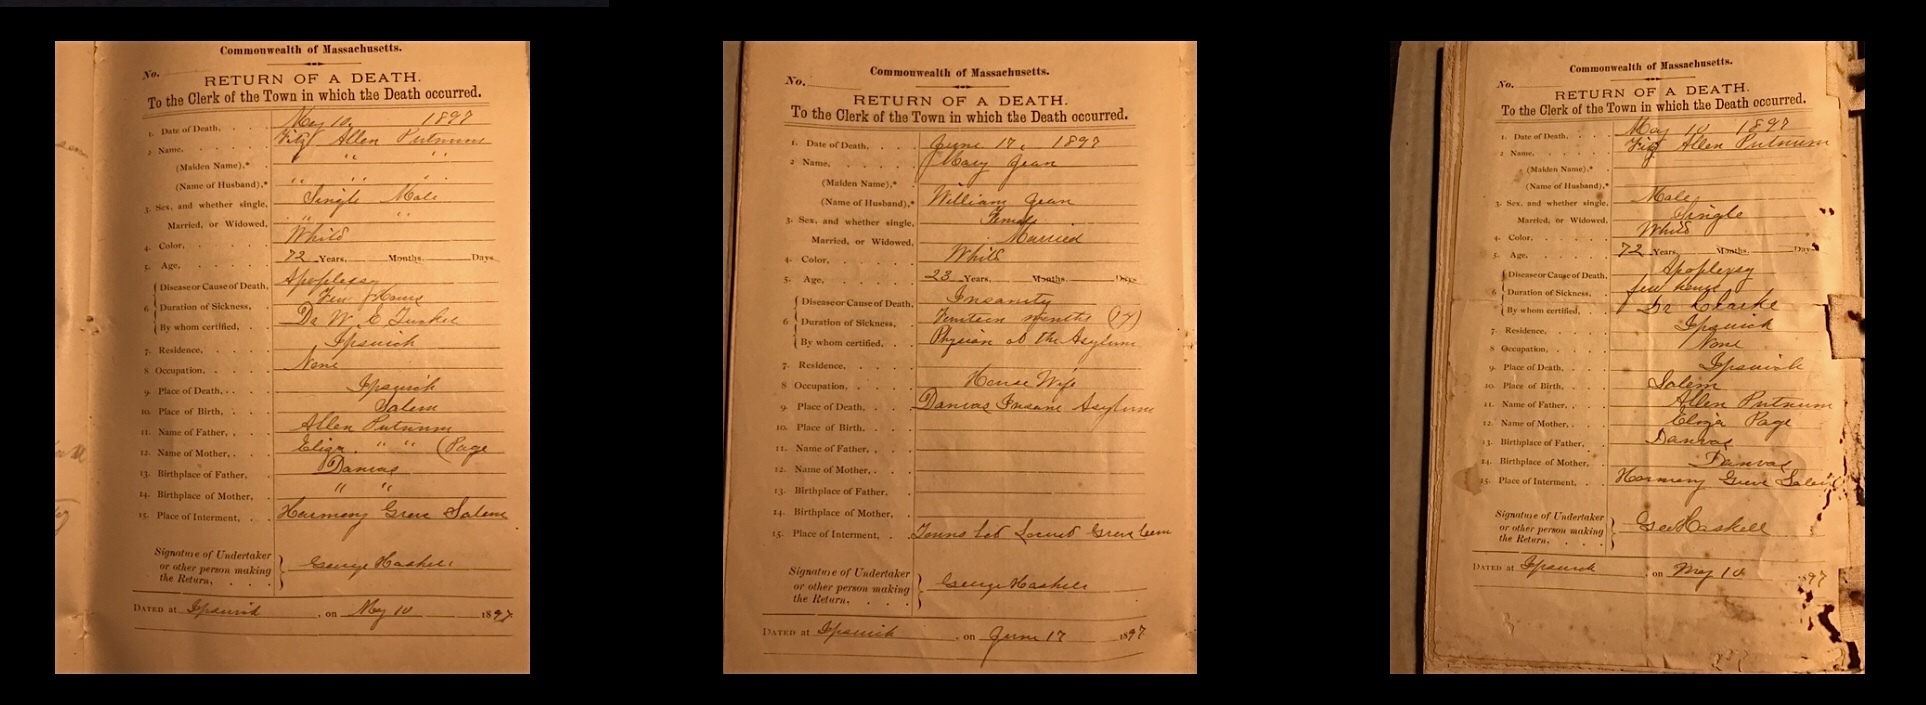 Commonwealth of Massachusetts.
No.
RETURN OF A DEATH.
To the Clerk of the Town in which the Death occurred.
1. Date of Death, May 10, 1897
2 Name, Allen Putnum
(Maiden Name),* " "
(Name of Husband),* " " "
3. Sex, and whether single, Single Male
Married, or Widowed, " "
4. Color, White
5. Age, 72 Years, Months, Days
6 Disease or Cause of Death, Apoplexy
Duration of Sickness, Few Hours
By whom certified, Dr W. E.
7. Residence, Ipswich
8 Occupation, None
9. Place of Death, Ipswich
10. Place of Birth, Salem
11. Name of Father, Allen Putnum
12. Name of Mother, Eliza " " (Page
13. Birthplace of Father, Danvas
14. Birthplace of Mother, " "
15. Place of Interment, Harmony Grove Salem
Signature of Undertaker
or other person making George Haskell
the Return,
DATED at Ipswich, on May 10 1897
Commonwealth of Massachusetts.
No.
RETURN OF A DEATH.
To the Clerk of the Town in which the Death occurred.
1. Date of Death, June 17, 1897
2 Name, Mary Jean
(Maiden Name),*
(Name of Husband),* William Jean
3. Sex, and whether single, Female
Married, or Widowed, Married
4. Color, White
5. Age, 23 Years, Months, Days
6 Disease or Cause of Death, Insanity
Duration of Sickness, months
By whom certified, Physian at the Asylum
7. Residence,
8 Occupation, House Wife
9. Place of Death, Danvas Insane Asylum
10. Place of Birth,
11. Name of Father,
12. Name of Mother,
13. Birthplace of Father,
14. Birthplace of Mother,
15. Place of Interment, Towns Lot Locust Grove Cem
Signature of Undertaker
or other person making George Haskell
the Return,
DATED at Ipswich, on June 17 1897
Commonwealth of Massachusetts.
No.
RETURN OF A DEATH.
To the Clerk of the Town in which the Death occurred.
1. Date of Death, May 10 1897
2 Name, Allen Putnum
(Maiden Name),*
(Name of Husband),*
3. Sex, and whether single, Male
Married, or Widowed, Single
4. Color, White
5. Age, 72 Years, Months, Days
6 Disease or Cause of Death, Apoplexy
Duration of Sickness, few hours
By whom certified, Dr Clarke
7. Residence, Ipswich
8 Occupation, None
9. Place of Death, Ipswich
10. Place of Birth, Salem
11. Name of Father, Allen Putnum
12. Name of Mother, Eliza Page
13. Birthplace of Father, Danvas
14. Birthplace of Mother, Danvas
15. Place of Interment, Harmony Grove Salem
Signature of Undertaker
or other person making Geo Haskell
the Return,
DATED at Ipswich on May 10 97